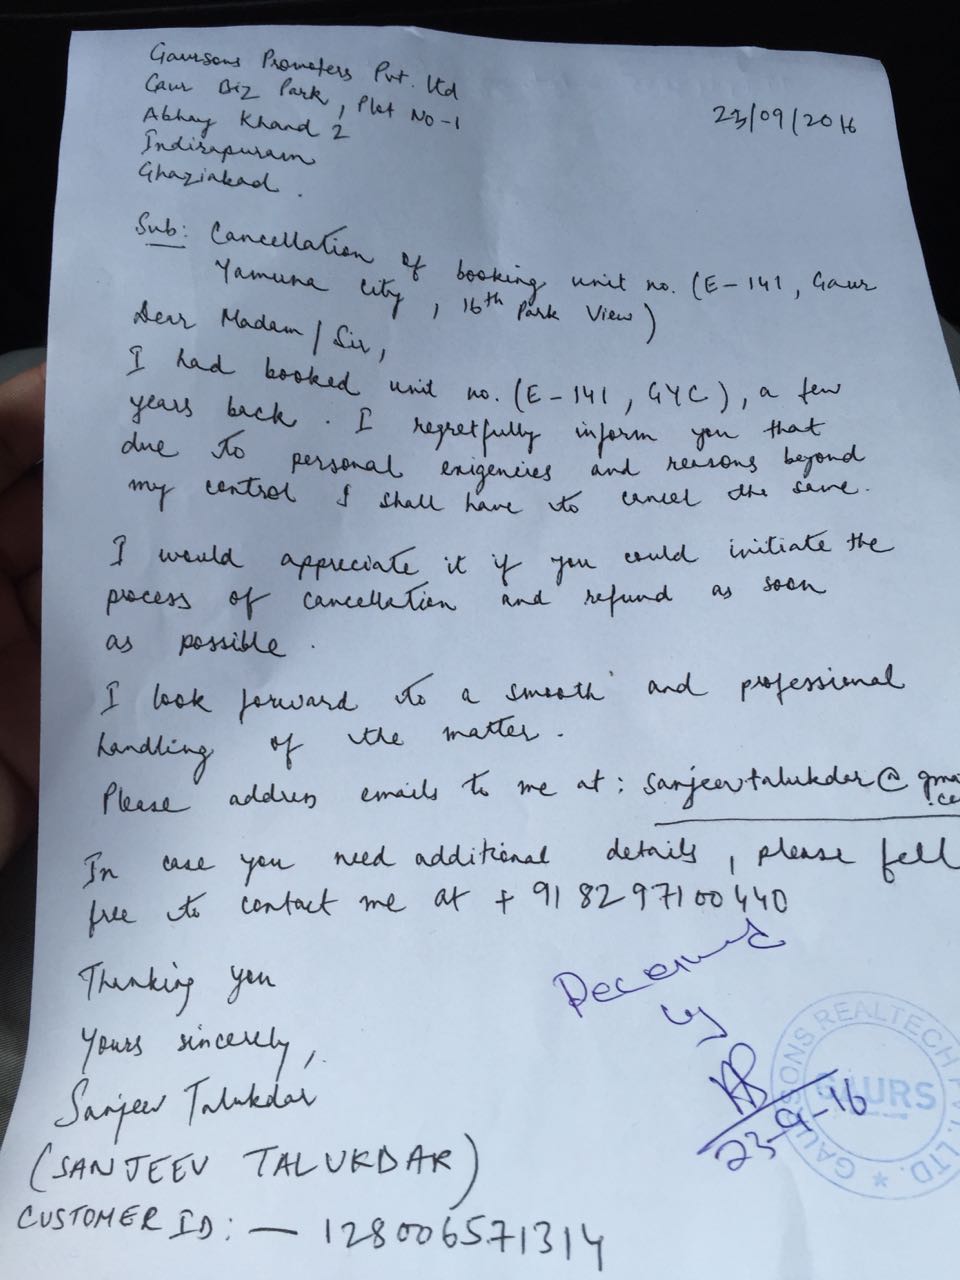 Gaursons Promoters Pvt. Ltd
Gaur Biz Park, Plot No-1
Abhay Khand 2
Indirapuram
Ghaziabad.
23/09/2016
Sub: Cancellation of booking unit no. (E-141, Gaur
Yamuna City, 16th Park View)
Dear Madam / Sir,
I had booked unit no. (E-141, GYC), a few
years back. I regretfully inform you that
due to personal exigencies and reasons beyond
my control I shall have to cancel the same.
I would appreciate it if you could initiate the
process of cancellation and refund as soon
as possible.
I look forward to a smooth and professional
handling of the matter.
Please address emails to me at: sanjeevtalukdar@gma
.co
In case you need additional details, please fell
free to contact me at +918297100440
Thanking you
Yours sincerely,
Sanjeev Talukdar
(SANJEEV TALUKDAR)
CUSTOMER ID: — 128006571314
Received
by
23-9-16
GAURSONS REALTECH PVT. LTD. *
GAURS